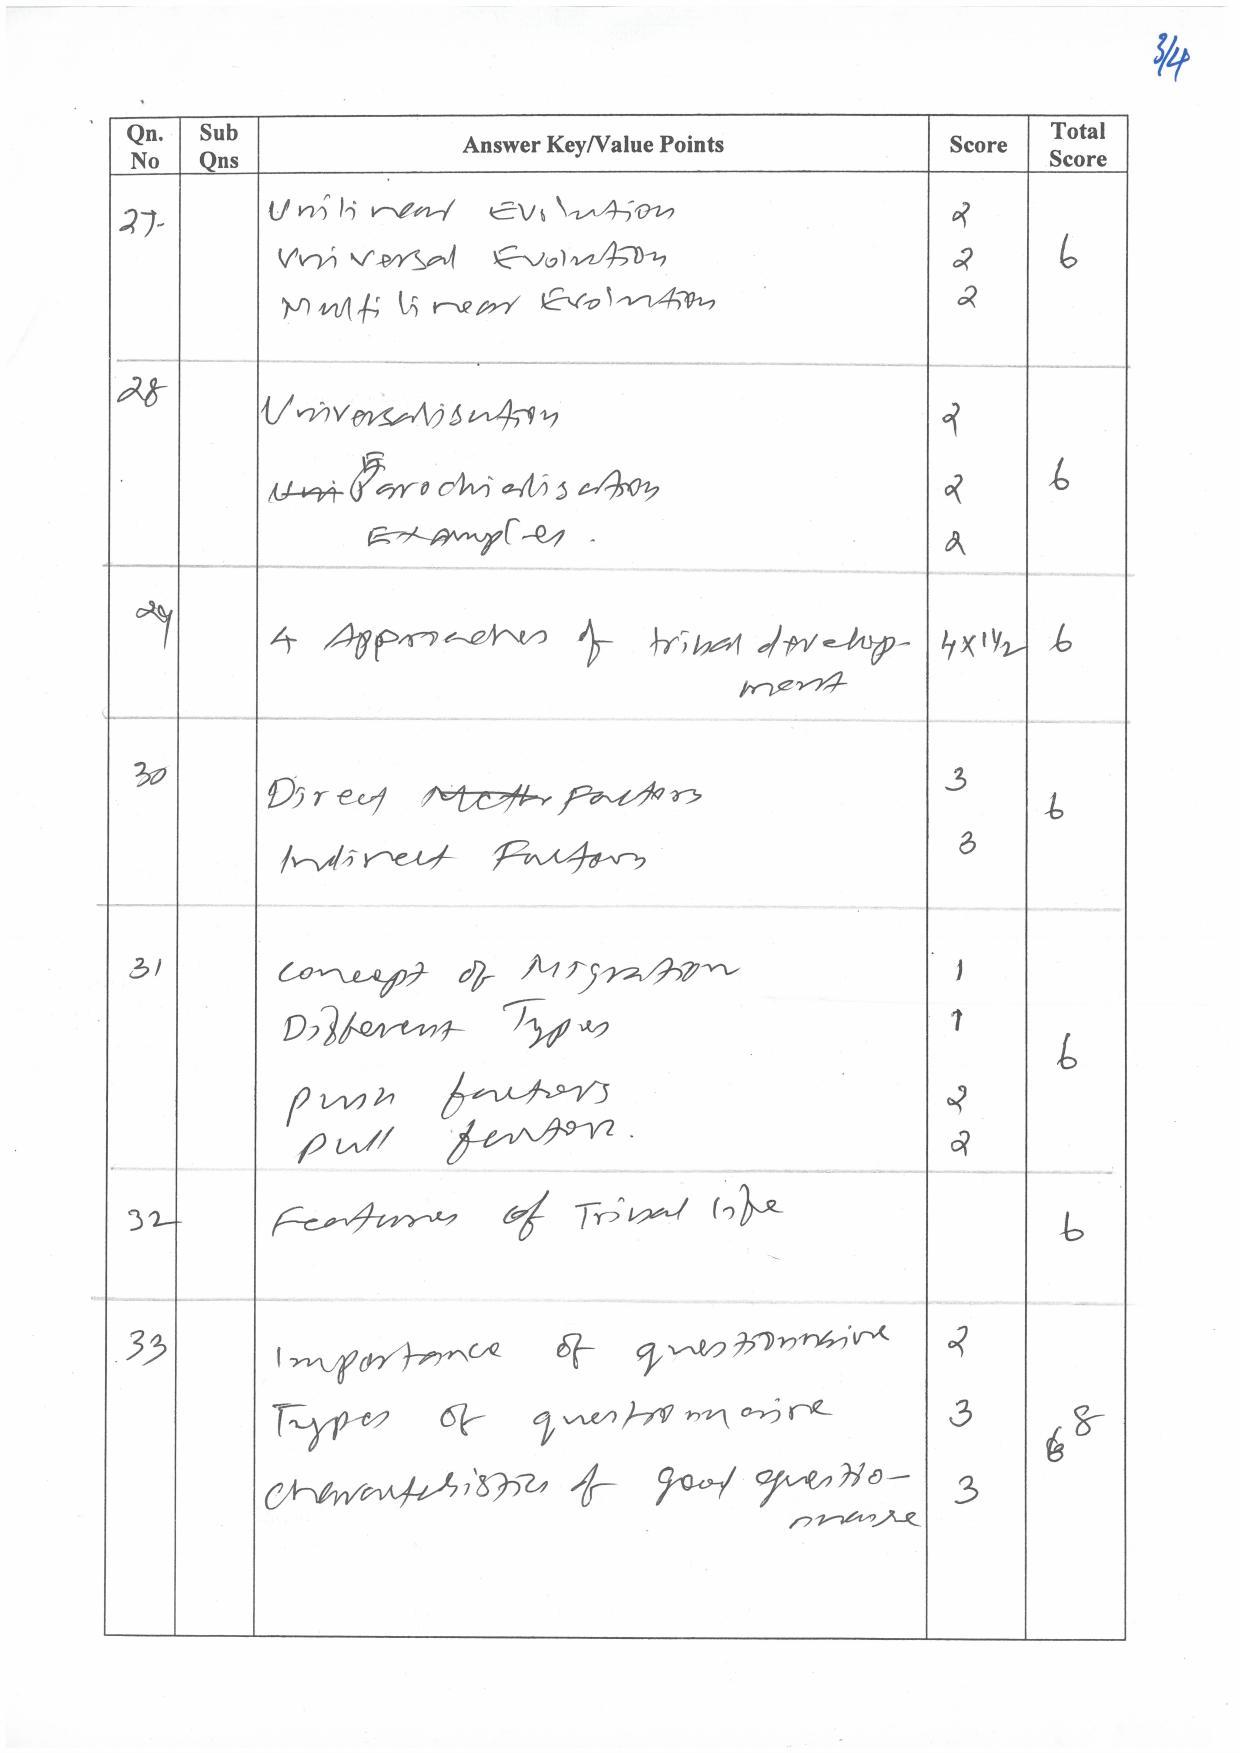 3/4
Qn. No Sub Qns Answer Key/Value Points Score Total Score
27. Unilinear Evolution 2
Universal Evolution 2 6
Multilinear Evolution 2
28 Universalisation 2
Uni Parochialisation 2 6
Examples. 2
29 4 Approaches of tribal develop- 4x1½ 6
ment
30 Direct Factors 3 6
Indirect Factors 3
31 Concept of Migration 1
Different Types 1 6
Push factors 2
Pull factors. 2
32 Features of Tribal life 6
33 Importance of questionnaire 2
Types of questionnaire 3 8
Characteristics of good questio- 3
nnaire